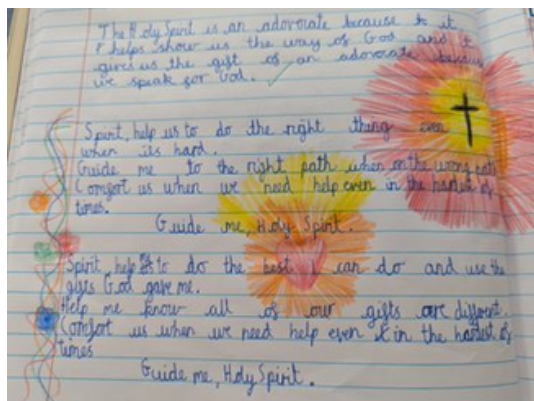 The Holy Spirit is an adovorate because it
helps show us the way of God and it
gives us the gift of an adovorate because
we speak for God.
Spirit, help us to do the right thing even
when its hard.
Guide me to the right path when on the wrong path
Comfort us when we need help even in the hardest of
times.
Guide me, Holy Spirit.
Spirit help us to do the best I can do and use the
gifts God gave me.
Help me know all of our gifts are different.
Comfort us when we need help even in the hardest of
times
Guide me, Holy Spirit.